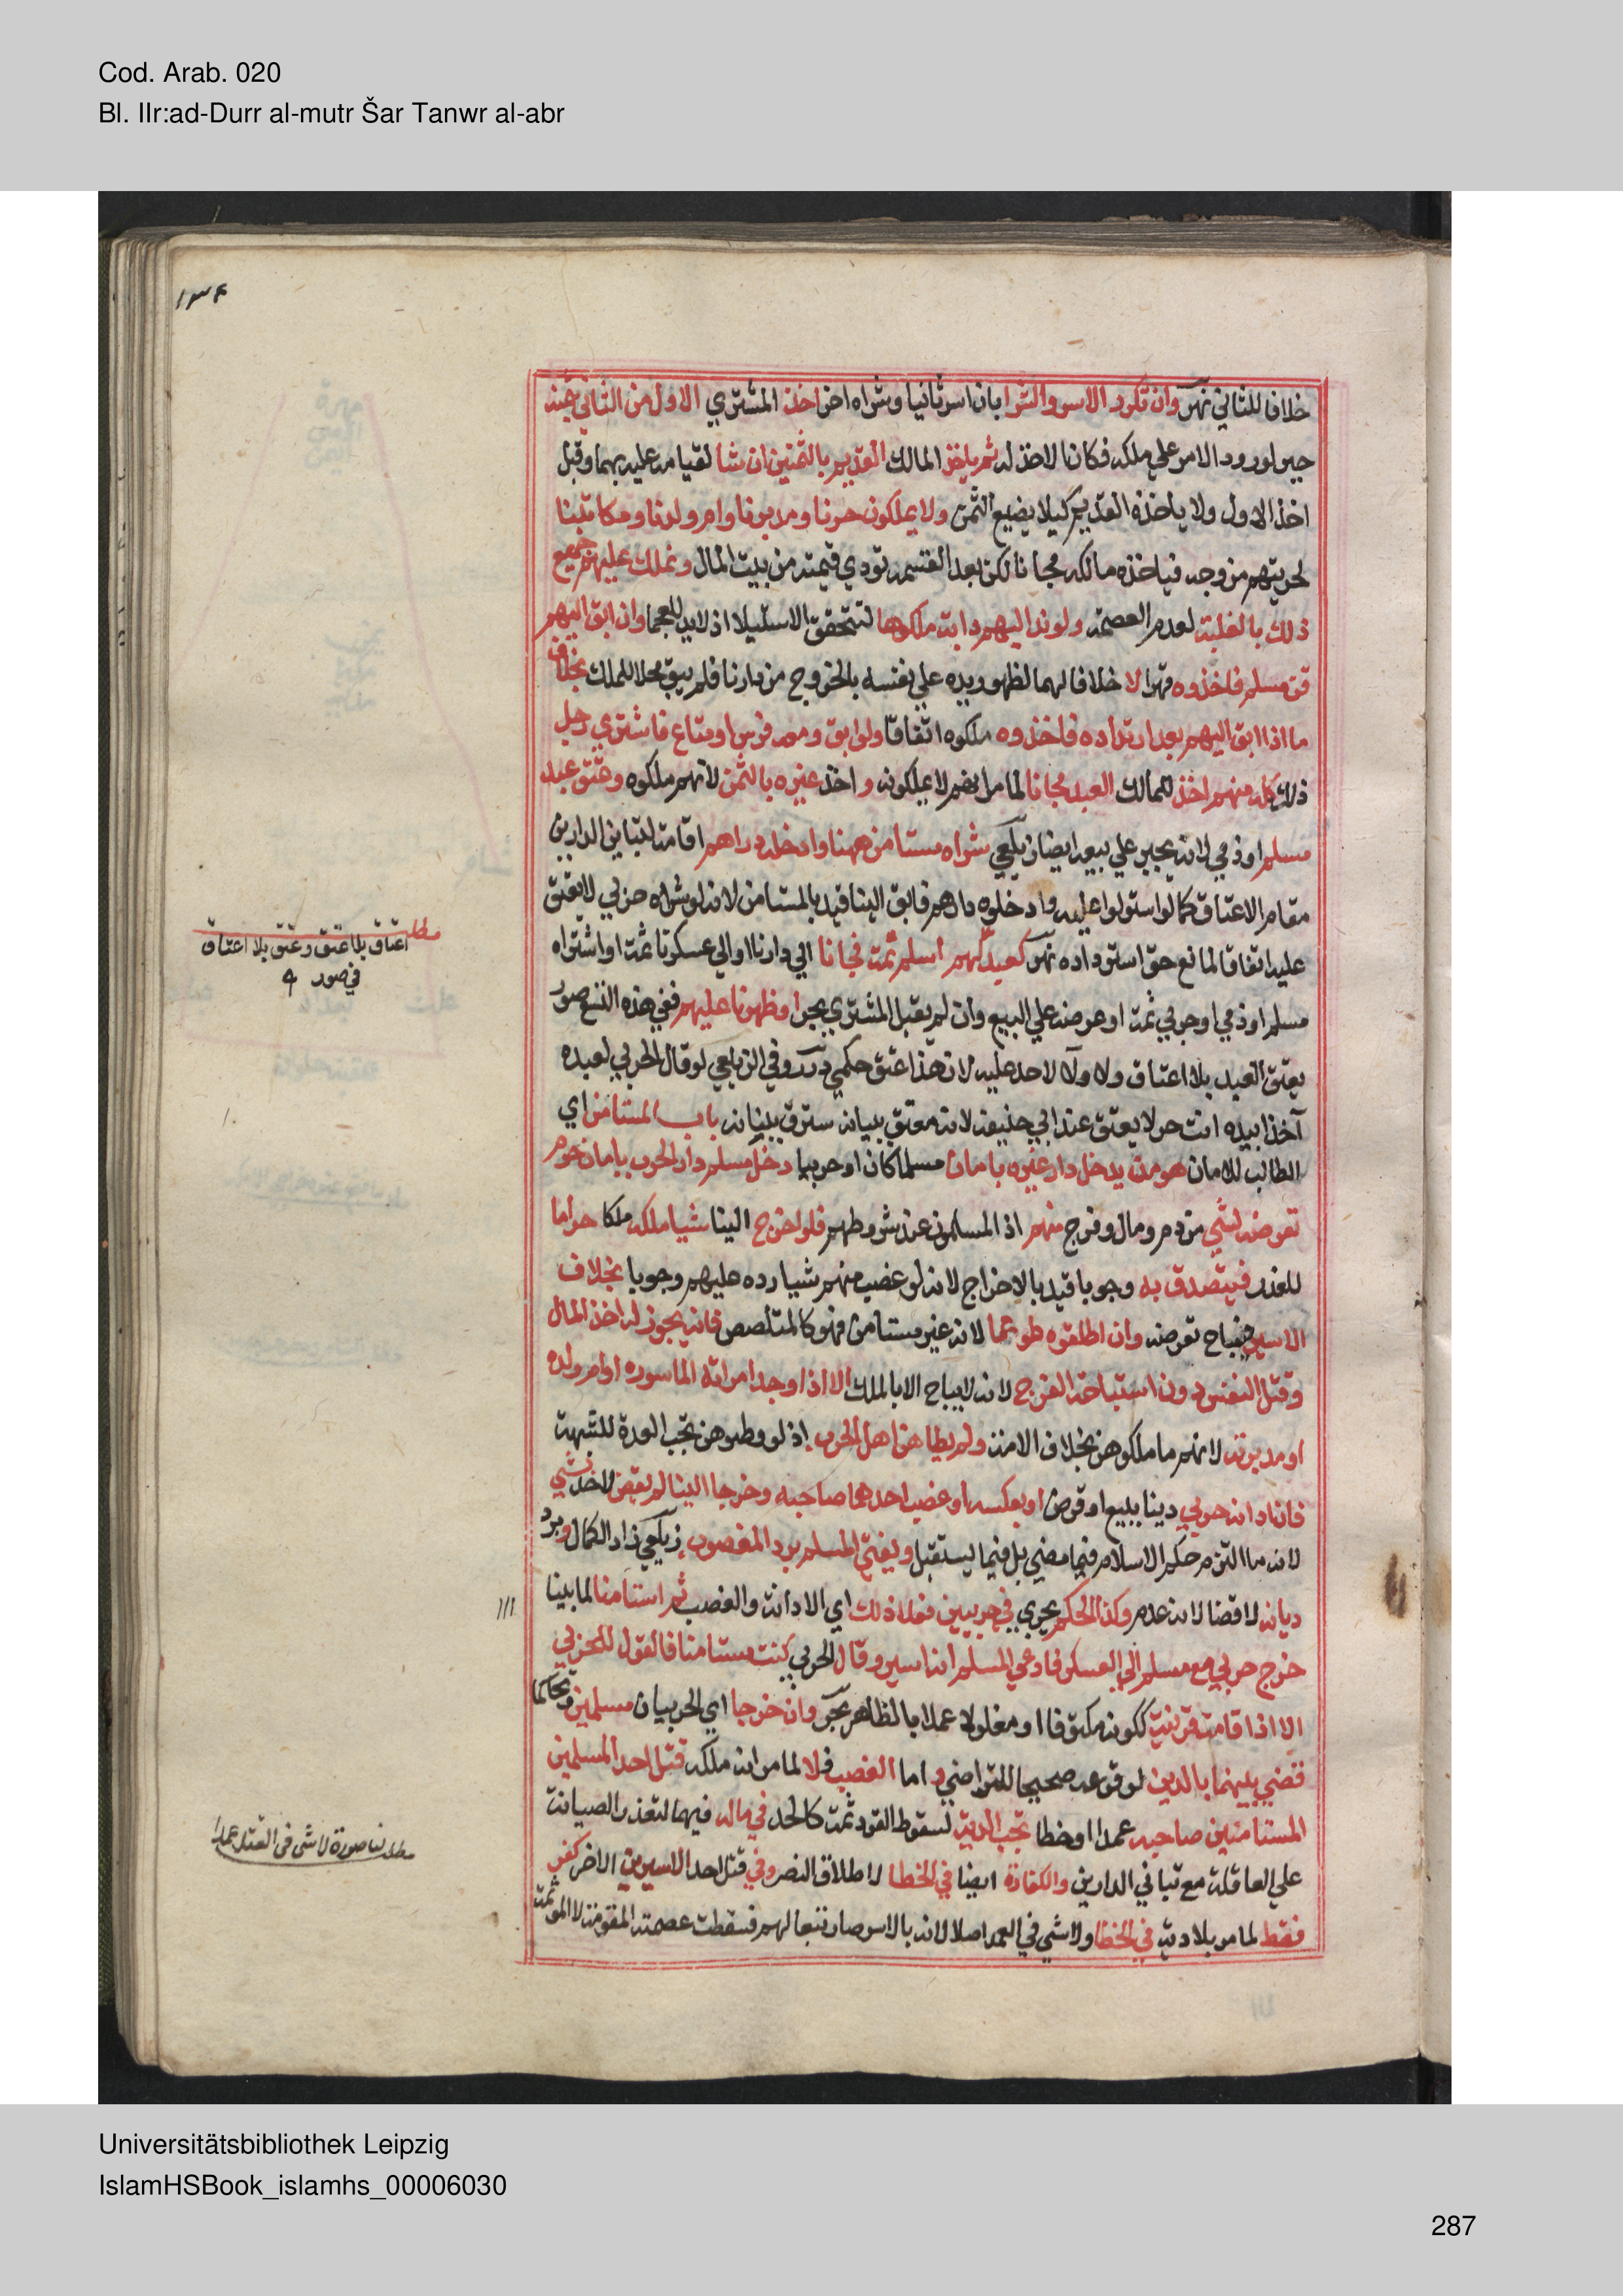 Cod. Arab. 020
Bl. IIr:ad-Durr al-mutr Šar Tanwr al-abr
١٣٤
خلافا للثاني نهر وان تكرر الاسر والشرا بان اسر ثانيا وشراه اخر اخذ المشتري الاول من الثاني بثمنه
جبرا لورود الامر على ملكه فكان الاخذ له ثم ياخذ المالك القديم بالثمنين ان شا لقيامه عليه بهما وقبل
اخذ الاول ولا ياخذه القديم كيلا يضيع الثمن ولا يملكون حرنا ومدبرنا وام ولدنا ومكاتبنا
لحريتهم من وجه فياخذه مالكه مجانا لكن بعد القسمة تودي قيمته من بيت المال ونملك عليهم جميع
ذلك بالغلبة لعدم العصمة ولو ند اليهم دابة ملكوها لتحقق الاستيلا اذ لا يد للعجما وان ابق اليهم
قن مسلم فاخذوه قهرا لا خلافا لهما لظهور يده على نفسه بالخروج من دارنا فلم يبق محلا للملك بخلاف
ما اذا ابق اليهم بعد ارتداده فاخذوه ملكوه اتفاقا ولو ابق ومعه فرس او متاع فاشتري رجل
ذلك كله منهم اخذ المالك العبد مجانا لما مر انهم لا يملكونه واخذ غيره بالثمن لانهم ملكوه وعتق عبد
مسلم او ذمي لانه يجبر على بيعه ايضا زيلعي شراه مستامن ههنا وادخله دارهم اقامة لتباين الدارين
مقام الاعتاق كما لو استولوا عليه وادخلوه دارهم فابق الينا قيد بالمستامن لانه لو شراه حربي لا يعتق
عليه اتفاقا لمانع حق استرداده نهر كعبد لهم اسلم ثمة فجانا الى دارنا او الى عسكرنا ثمة او اشتراه
مسلم او ذمي او حربي ثمة او عرضه على البيع وان لم يقبل المشتري بحر او ظهرنا عليهم ففي هذه التسع صور
يعتق العبد بلا اعتاق ولا ولآ لاحد عليه لان هذا عتق حكمي درر وفي الزيلعي لو قال الحربي لعبده
آخذا بيده انت حر لا يعتق عند ابي حنيفة لانه معتق ببيانه سترق ببنانه باب المستامن اي
الطالب للامان هو من يدخل دار غيره بامان مسلما كان او حربيا دخل مسلم دار الحرب بامان حرم
تعرضه لشي من دم ومال وفرج منهم اذ المسلمون عند شروطهم فلو اخرج الينا شيا ملكه ملكا حراما
للغدر فيتصدق به وجوبا قيد بالاخراج لانه لو غصب منهم شيا رده عليهم وجوبا بخلاف
الاسير فيباح تعرضه وان اطلقوه طوعا لانه غير مستامن فهو كالمتلصص فانه يجوز له اخذ المال
وقتل النفس دون استباحة الفرج لانه لا يباح الا بالملك الا اذا وجد امراته الماسوره او ام ولده
او مدبرته لانهم ما ملكوهن بخلاف الامة ولم يطاهن اهل الحرب اذ لو وطىوهن تجب العدة للشبهة
فان ادانه حربي دينا ببيع او قرض او بعكسه او غصب احدهما صاحبه وخرجا الينا لم يقض لاحد بشي
لانه ما التزم حكم الاسلام فيما مضي بل فيما يستقبل ويفتي المسلم برد المغصوب زيلعي زاد الكمال وبرد
ديانه لا قضا لانه عدم وكذا الحكم يجري في حربيين فعلا ذلك اي الادانة والغصب ثم استامنا لما بينا
خرج حربي مع مسلم الى العسكر فادعي المسلم انه اسير وقال الحربي كنت مستامنا فالقول للحربي
الا اذا قامت قرينة ككونه مكتوفا او مغلولا عملا بالظاهر بحر وان خرجا اي الحربيان مسلمين وتحاكما
قضي بينهما بالدين لوقوعه صحيحا للتراضي و اما الغصب فلا لما مر انه ملكه قتل احد المسلمين
المستامنين صاحبه عمدا او خطا تجب الدية لسقوط القود ثمة كالحد في ماله فيهما لتعذر الصيانة
على العاقلة مع تباني الدارين والكفارة ايضا في الخطا لاطلاق النص وفي قتل احد الاسيرين الاخر كفر
فقط لما مر بلا دية في الخطا ولا شي في العمد اصلا لانه بالاسر صار تبعا لهم فسقطت عصمته المقومة لا الموثمة
مطلب
اعتاق بلا عتق وعتق بلا اعتاق
في صور ٩
مطلب لنا صورة لا شى فى القتل عمدا
Universitätsbibliothek Leipzig
IslamHSBook_islamhs_00006030
287